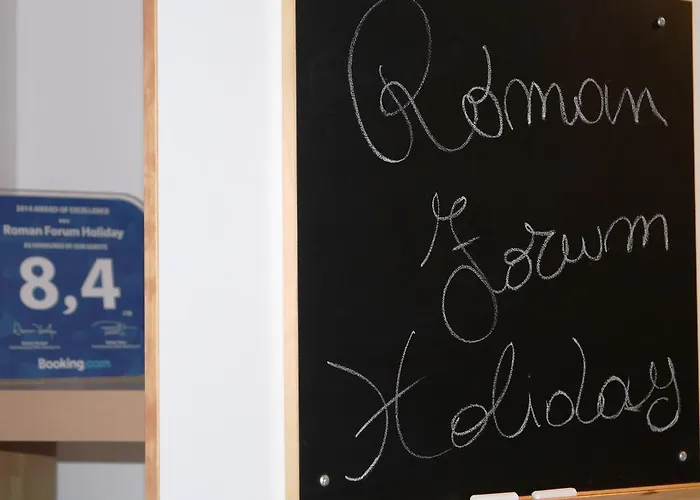 2014 AWARD OF EXCELLENCE
Roman Forum Holiday
8,4
Booking.com
Roman
Forum
Holiday